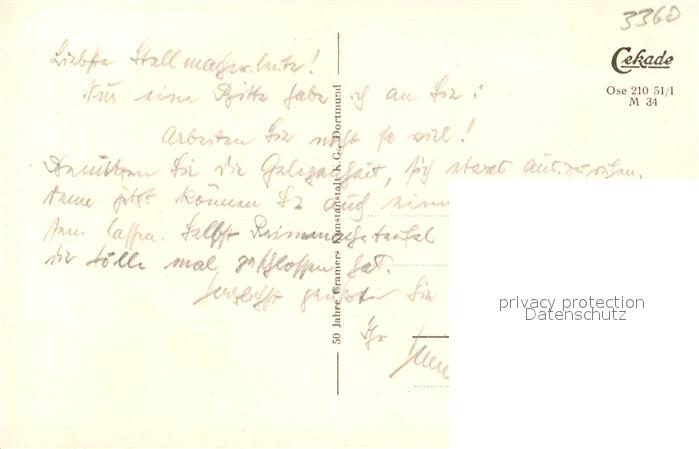 3360
Cekade
Ose 210 51/1
M 34
50 Jahre Cramers Kunstanstalt K.G., Dortmund
Liebste Stallmacher-leute!
Nur eine Bitte habe ich an Sie:
Arbeiten Sie nicht so viel!
Benützen Sie die Gelegenheit, sich etwas auszuruhen,
denn jetzt können Sie auch
sein lassen. Selbst
die Hölle mal geschlossen hat.
herzlichst grüßen Sie
Ihr
privacy protection
Datenschutz